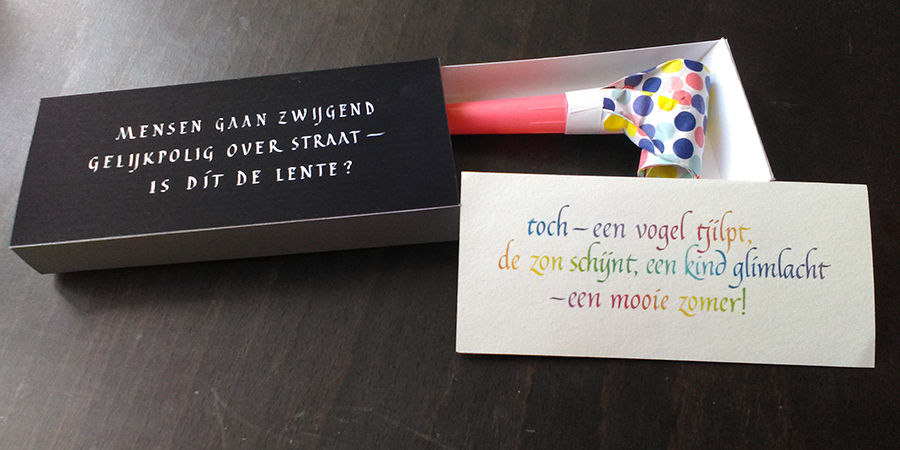 MENSEN GAAN ZWIJGEND
GELIJKPOLIG OVER STRAAT —
IS DÍT DE LENTE?
toch — een vogel tjilpt,
de zon schijnt, een kind glimlacht
— een mooie zomer!